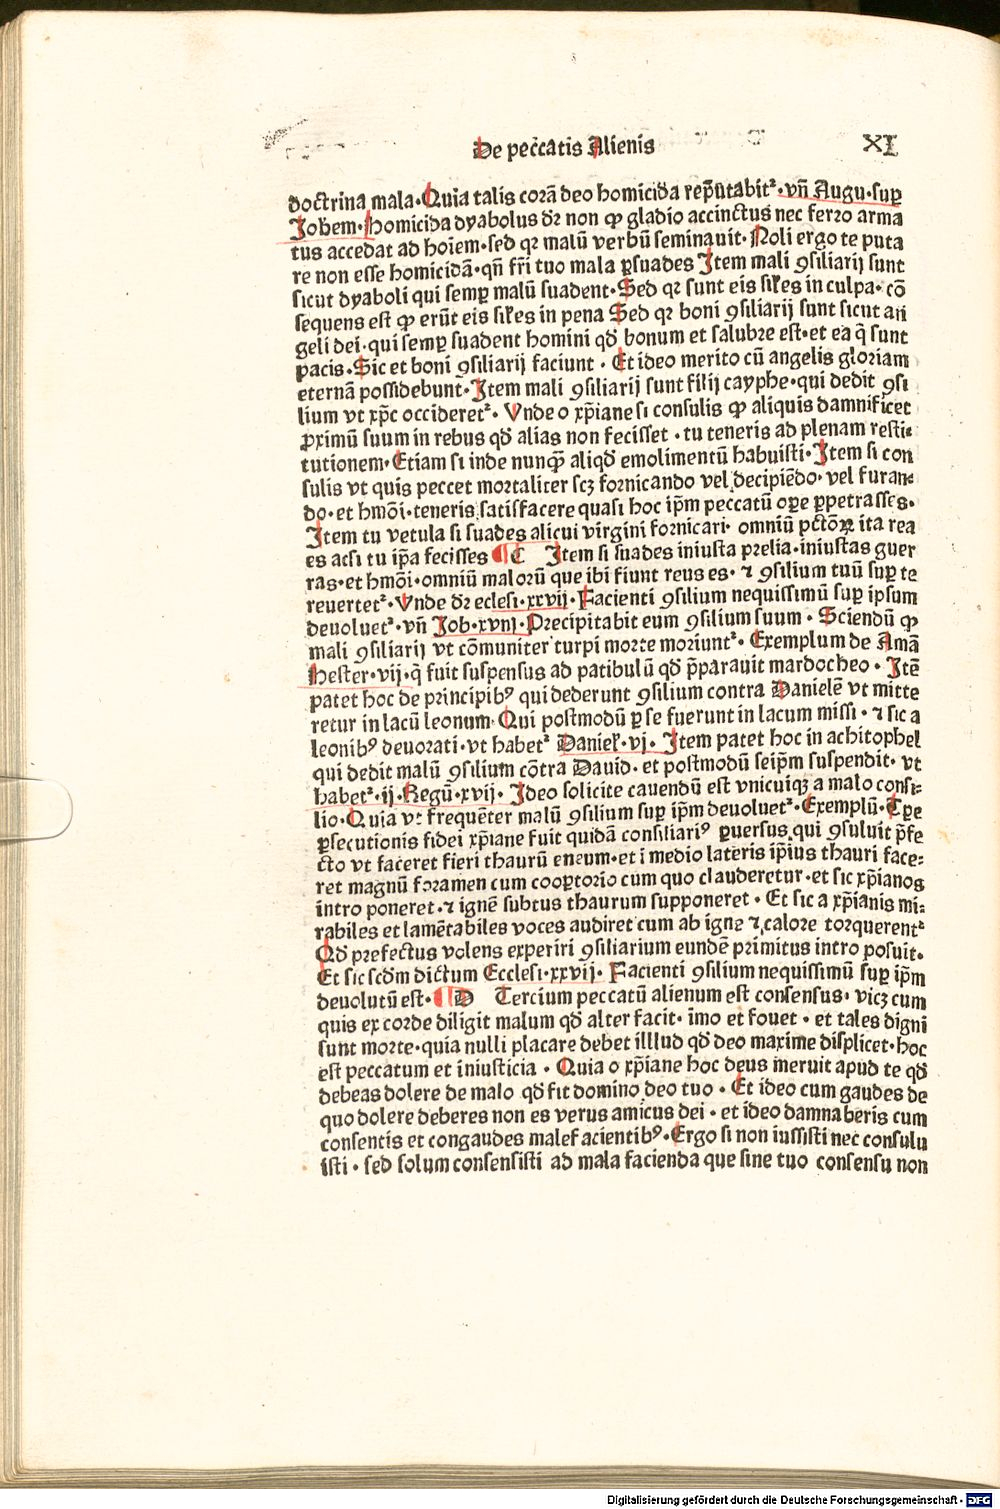 De peccatis Alienis XI
doctrina mala · Quia talis corã deo homicida rep̃utabitᷣ · vñ Augu · suꝑ
Joħem · Homicida dyabolus dr̃ non ꝙ gladio accinctus nec ferro arma
tus accedat ad hoïem · sed qꝛ malũ verbũ seminauit · Noli ergo te puta
re non esse homicidã · qñ fr̃i tuo mala ꝑsuades Item mali ꝯsiliarij sunt
sicut dyaboli qui semꝑ malũ suadent · Sed qꝛ sunt eis siłes in culpa · cõ
sequens est ꝙ erũt eis siłes in pena Sed qꝛ boni ꝯsiliarij sunt sicut an
geli dei · qui semꝑ suadent homini qd̃ bonum et salubre est · et ea q̃ sunt
pacis · Sic et boni ꝯsiliarij faciunt · Et ideo merito cũ angelis gloriam
eternã possidebunt · Item mali ꝯsiliarij sunt filij cayphe · qui dedit ꝯsi
lium vt xp̃c occideretᷣ · Vnde o xp̃iane si consulis ꝙ aliquis damnificet
ꝓximũ suum in rebus qd̃ alias non fecisset · tu teneris ad plenam resti⸗
tutionem · Etiam si inde nunqꝫ̃ aliqd̃ emolimentũ habuisti · Item si con
sulis vt quis peccet mortaliter scꝫ fornicando vel decipiẽdo · vel furan⸗
do · et hmõi · teneris satisfacere quasi hoc ip̃m peccatũ oꝑe ꝑpetrasses ·
Item tu vetula si suades alicui virgini fornicari · omniũ pctõꝝ ita rea
es acsi tu ip̃a fecisses ¶ C Item si suades iniusta prelia · iniustas guer
ras · et hmõi · omniũ malorũ que ibi fiunt reus es · ⁊ ꝯsilium tuũ suꝑ te
reuertetᷣ · Vnde dr̃ eclesi · xxvij · Facienti ꝯsilium nequissimũ suꝑ ipsum
deuoluetᷣ · vñ Job · xvnj · Precipitabit eum ꝯsilium suum · Sciendũ ꝙ
mali ꝯsiliarij vt cõmuniter turpi morte moriuntᷣ · Exemplum de Amã
Hester · vij · q̃ fuit suspensus ad patibulũ qd̃ p̃parauit mardocheo · Itẽ
patet hoc de principibꝰ qui dederunt ꝯsilium contra Danielẽ vt mitte
retur in lacũ leonum · Qui postmodũ ꝑ se fuerunt in lacum missi · ⁊ sic a
leonibꝰ deuorati · vt habetᷣ Danieł · vj · Item patet hoc in achitophel
qui dedit malũ ꝯsilium cõtra Dauid · et postmodũ seip̃m suspendit · vt
habetᷣ · ij · Regũ · xvij · Ideo solicite cauendũ est vnicuiqꝫ a malo consi⸗
lio · Quia vt frequẽter malũ ꝯsilium suꝑ ip̃m deuoluetᷣ · Exemplũ · Tꝑe
ꝑsecutionis fidei xp̃iane fuit quidã consiliariꝰ ꝑuersus qui ꝯsuluit p̃fe
cto vt faceret fieri thaurũ eneum · et ĩ medio lateris ip̃ius thauri face⸗
ret magnũ foramen cum cooꝑtorio cum quo clauderetur · et sic xp̃ianos
intro poneret · ⁊ ignẽ subtus thaurum supponeret · Et sic a xp̃ianis mi⸗
rabiles et lamẽtabiles voces audiret cum ab igne ⁊ calore torquerentᷣ
Qd̃ prefectus volens experiri ꝯsiliarium eundẽ primitus intro posuit ·
Et sic scd̃m dictum Ecclesi · xxvij · Facienti ꝯsilium nequissimũ suꝑ ip̃m
deuolutũ est · ¶ D Tercium peccatũ alienum est consensus · vicꝫ cum
quis ex corde diligit malum qd̃ alter facit · ĩmo et fouet · et tales digni
sunt morte · quia nulli placare debet illlud qd̃ deo maxime displicet · hoc
est peccatum et iniusticia · Quia o xp̃iane hoc deus meruit apud te qd̃
debeas dolere de malo qd̃ fit domino deo tuo · Et ideo cum gaudes de
quo dolere deberes non es verus amicus dei · et ideo damnaberis cum
consentis et congaudes malefacientibꝰ · Ergo si non iussisti nec consulu
isti · sed solum consensisti ad mala facienda que sine tuo consensu non
Digitalisierung gefördert durch die Deutsche Forschungsgemeinschaft - DFG